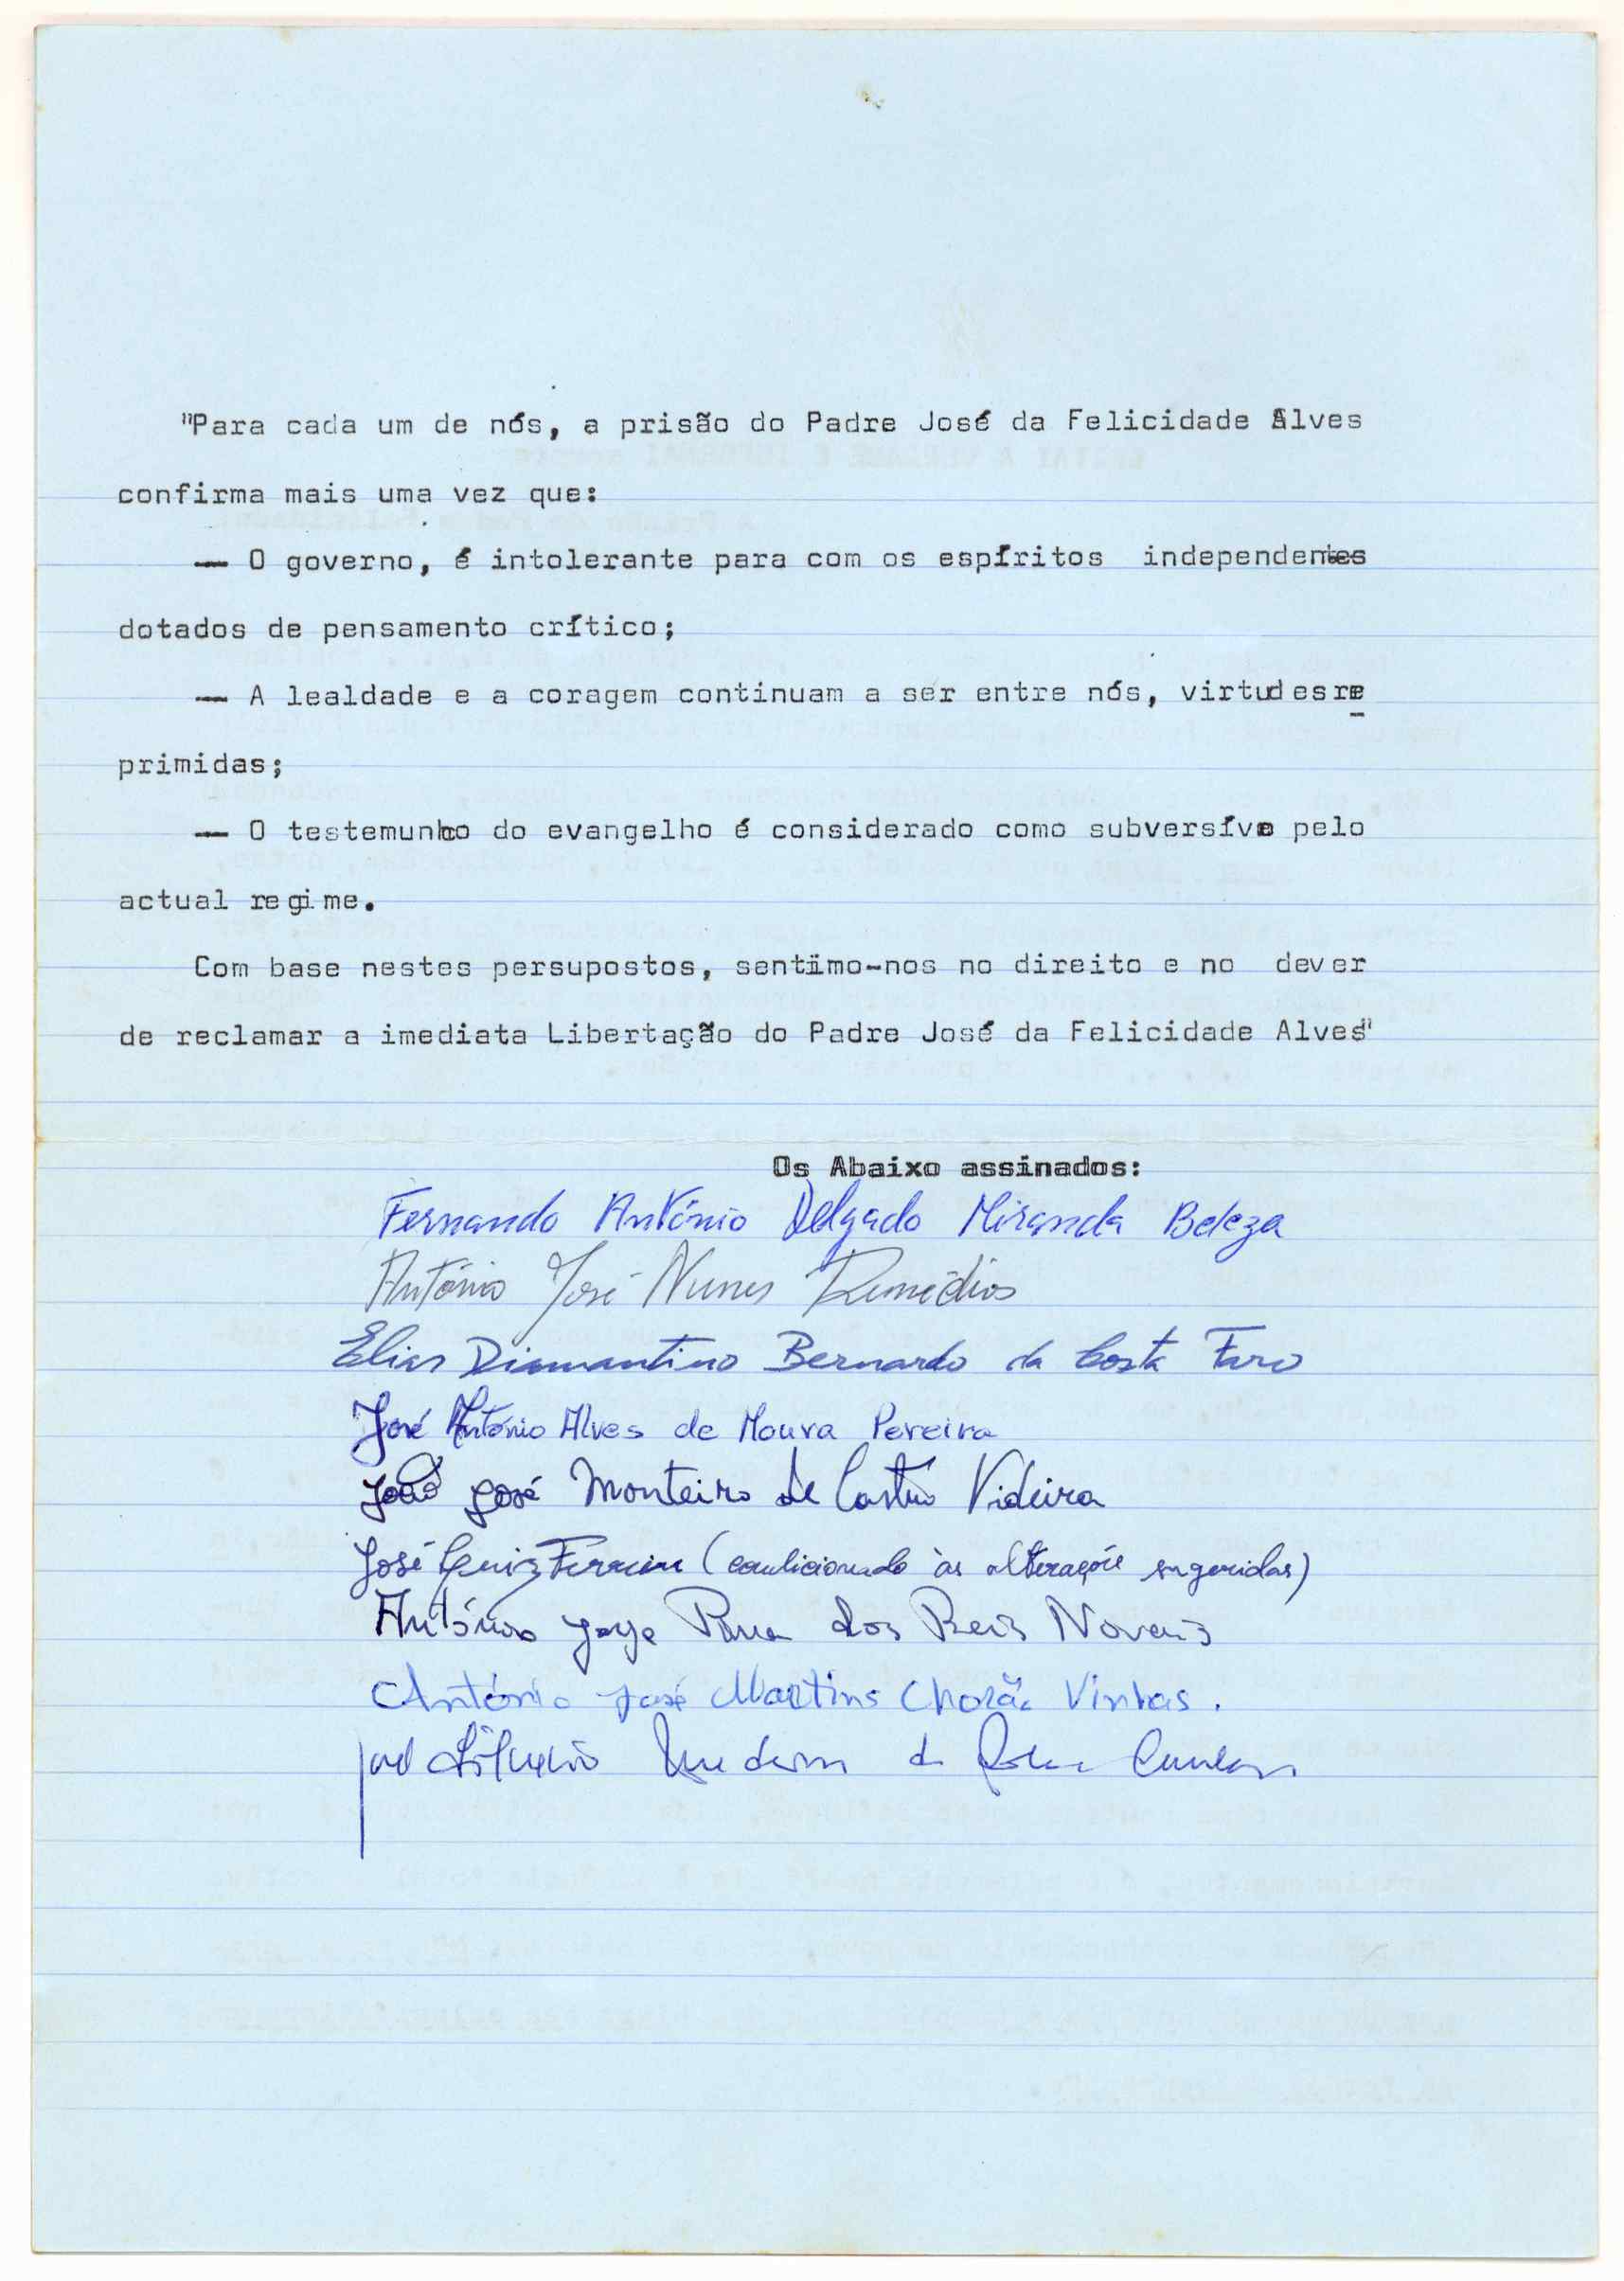 "Para cada um de nós, a prisão do Padre José da Felicidade Alves
confirma mais uma vez que:
— O governo, é intolerante para com os espíritos independentes
dotados de pensamento crítico;
— A lealdade e a coragem continuam a ser entre nós, virtudes re
primidas;
— O testemunho do evangelho é considerado como subversívo pelo
actual regime.
Com base nestes persupostos, sentimo-nos no direito e no dever
de reclamar a imediata Libertação do Padre José da Felicidade Alves"
Os Abaixo assinados:
Fernando António Delgado Miranda Beleza
António José Nunes Remédios
Elias Diamantino Bernardo da Costa Faro
José António Alves de Moura Pereira
João José Monteiro de Castro Videira
José Luiz Ferreira (condicionado às alterações sugeridas)
António Jorge dos Reis Novais
António José Martins Chorão Vinhas.